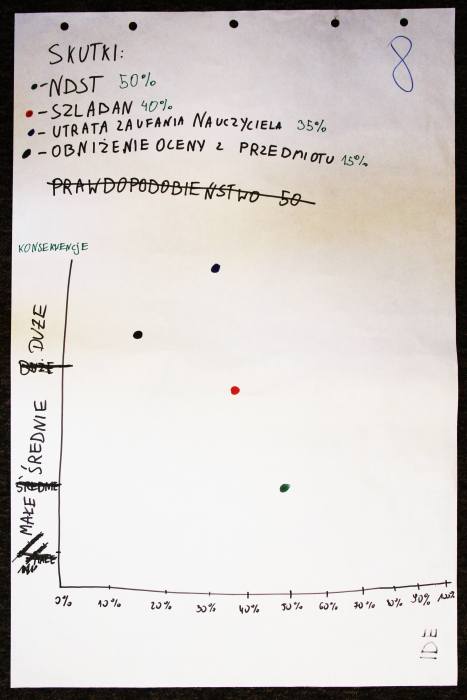 SKUTKI:
8
- NDST 50%
- SZLABAN 40%
- UTRATA ZAUFANIA NAUCZYCIELA 35%
- OBNIŻENIE OCENY Z PRZEDMIOTU 15%
PRAWDOPODOBIEŃSTWO 50
KONSEKWENCJE
DUŻE
ŚREDNIE
ŚREDNIE
MAŁE
MAŁE
0% 10% 20% 30% 40% 50% 60% 70% 80% 90% 100%